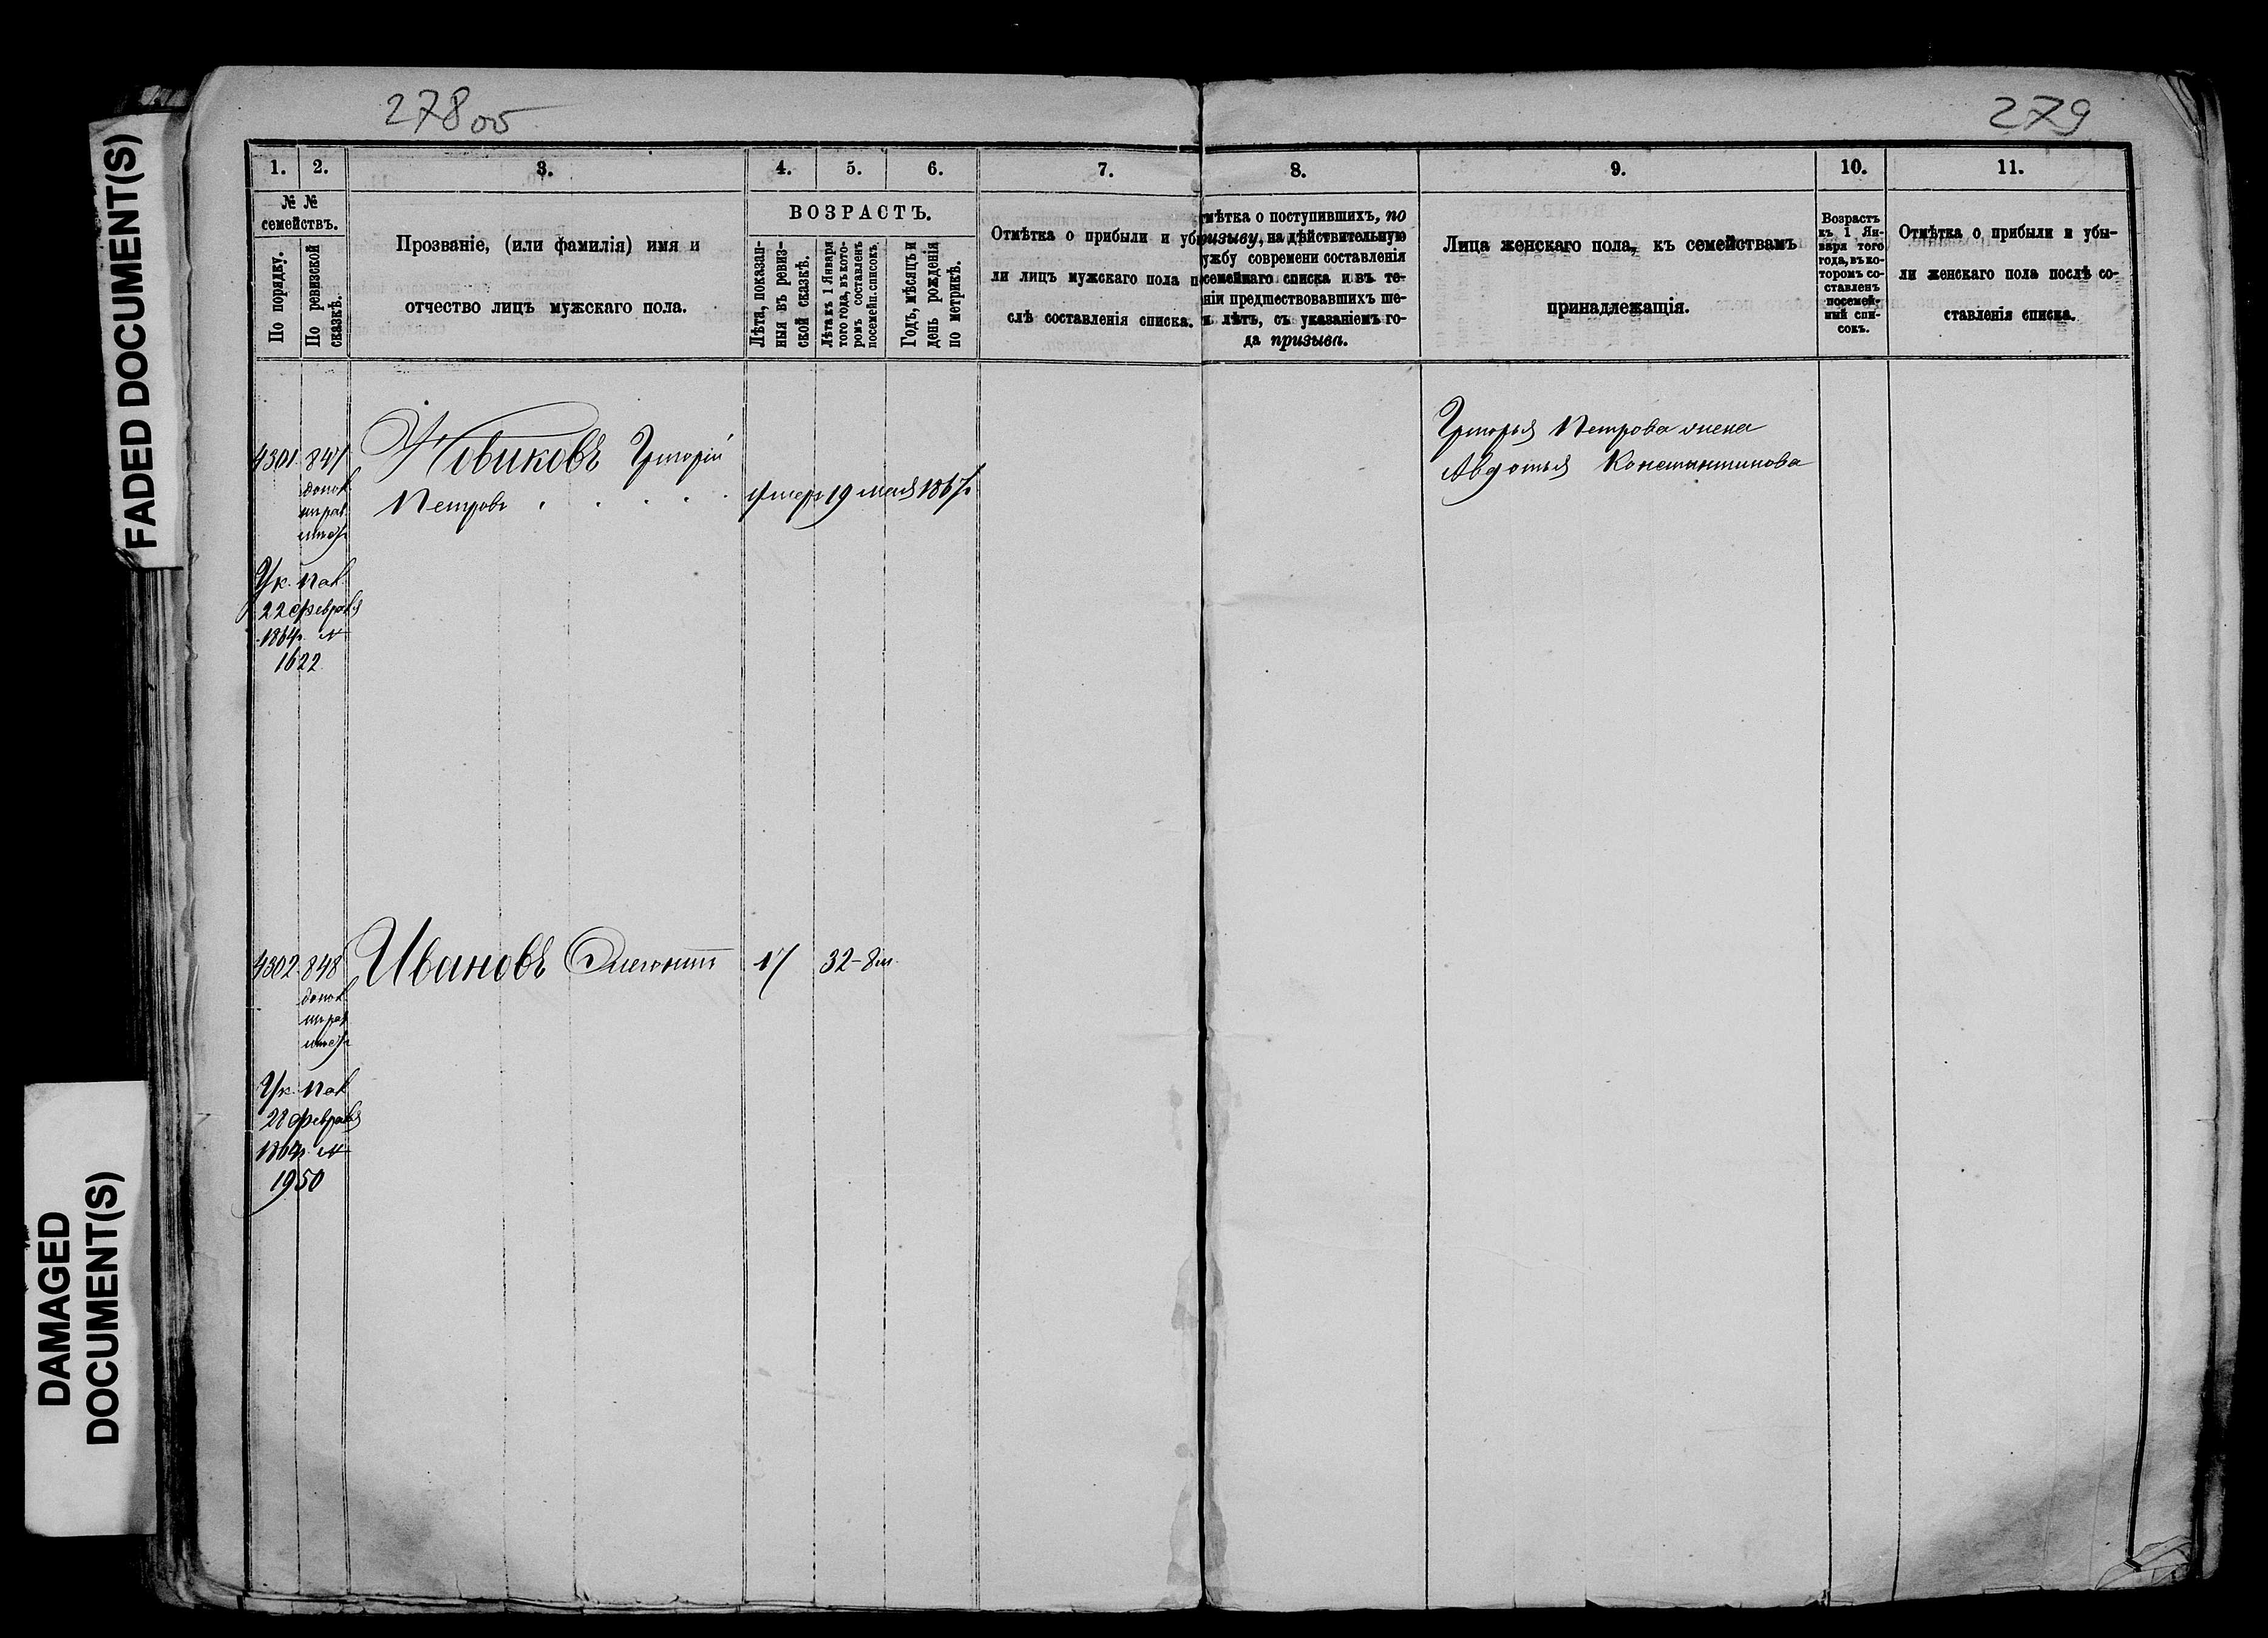 278 об
279
FADED DOCUMENT(S)
DAMAGED
DOCUMENT(S)
1.
2.
3.
4.
5.
6.
7.
8.
9.
10.
11.
№ №
семействъ.
По порядку.
По ревизской
сказкѣ.
Прозваніе, (или фамилія) имя и
отчество лицъ мужскаго пола.
ВОЗРАСТЪ.
Лѣта, показан-
ныя въ ревиз-
ской сказкѣ.
Лѣта къ 1 Января
того года, въ кото-
ромъ составленъ
посемейн. списокъ.
Годъ, мѣсяцъ и
день рожденія
по метрикѣ.
Отмѣтка о прибыли и уб
ли лицъ мужскаго пола п
слѣ составленія списка.
мѣтка о поступившихъ, по
ризыву, на дѣйствительную
ужбу современи составленія
семейнаго списка и въ те-
ніи предшествовавшихъ ше-
и лѣтъ, съ указаніемъ го-
да призыва.
Лица женскаго пола, къ семействамъ
принадлежащія.
Возрастъ
къ 1 Ян-
варя того
года, въ ко-
торомъ со-
ставленъ
посемей-
ный спи-
сокъ.
Отмѣтка о прибыли и убы-
ли женскаго пола послѣ со-
ставленія списка.
4301 847 Новиковъ Григорій
Петровъ умеръ 19 мая 1867г
Григорья Петрова жена
Авдотья Константинова
Ук. Пал.
22 февраля
1864г. №
1622
4302 848 Ивановъ 17 32-8м.
Ук. Пал.
28 февраля
1864г. №
1950